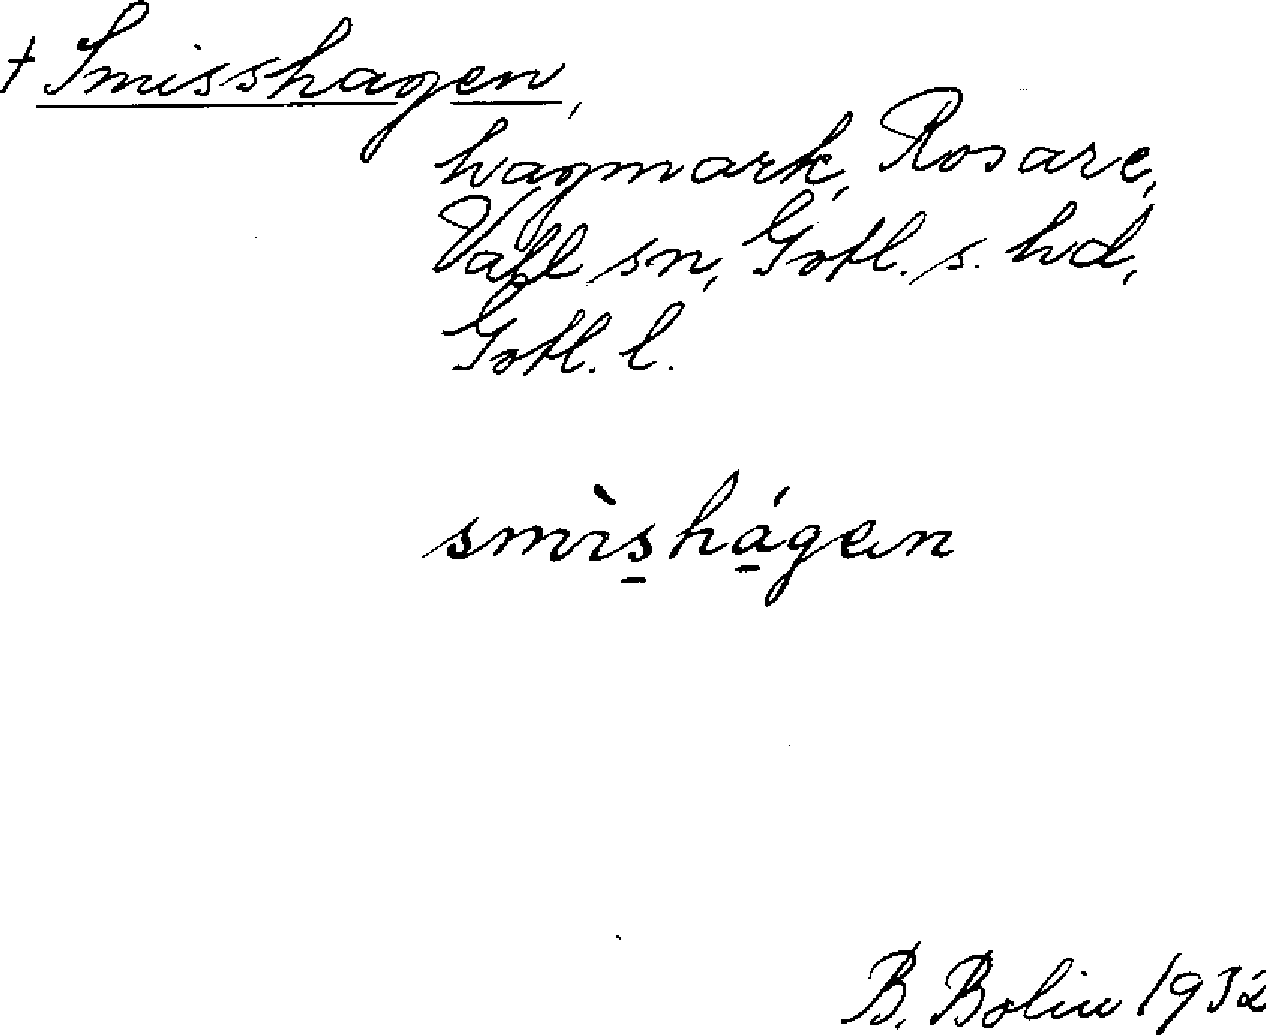 † Smisshagen,
hagmark, Rosare,
Vall sn, Gotl. s. hd,
Gotl. l.
smìs̱há̱gen
B. Bolin 1932